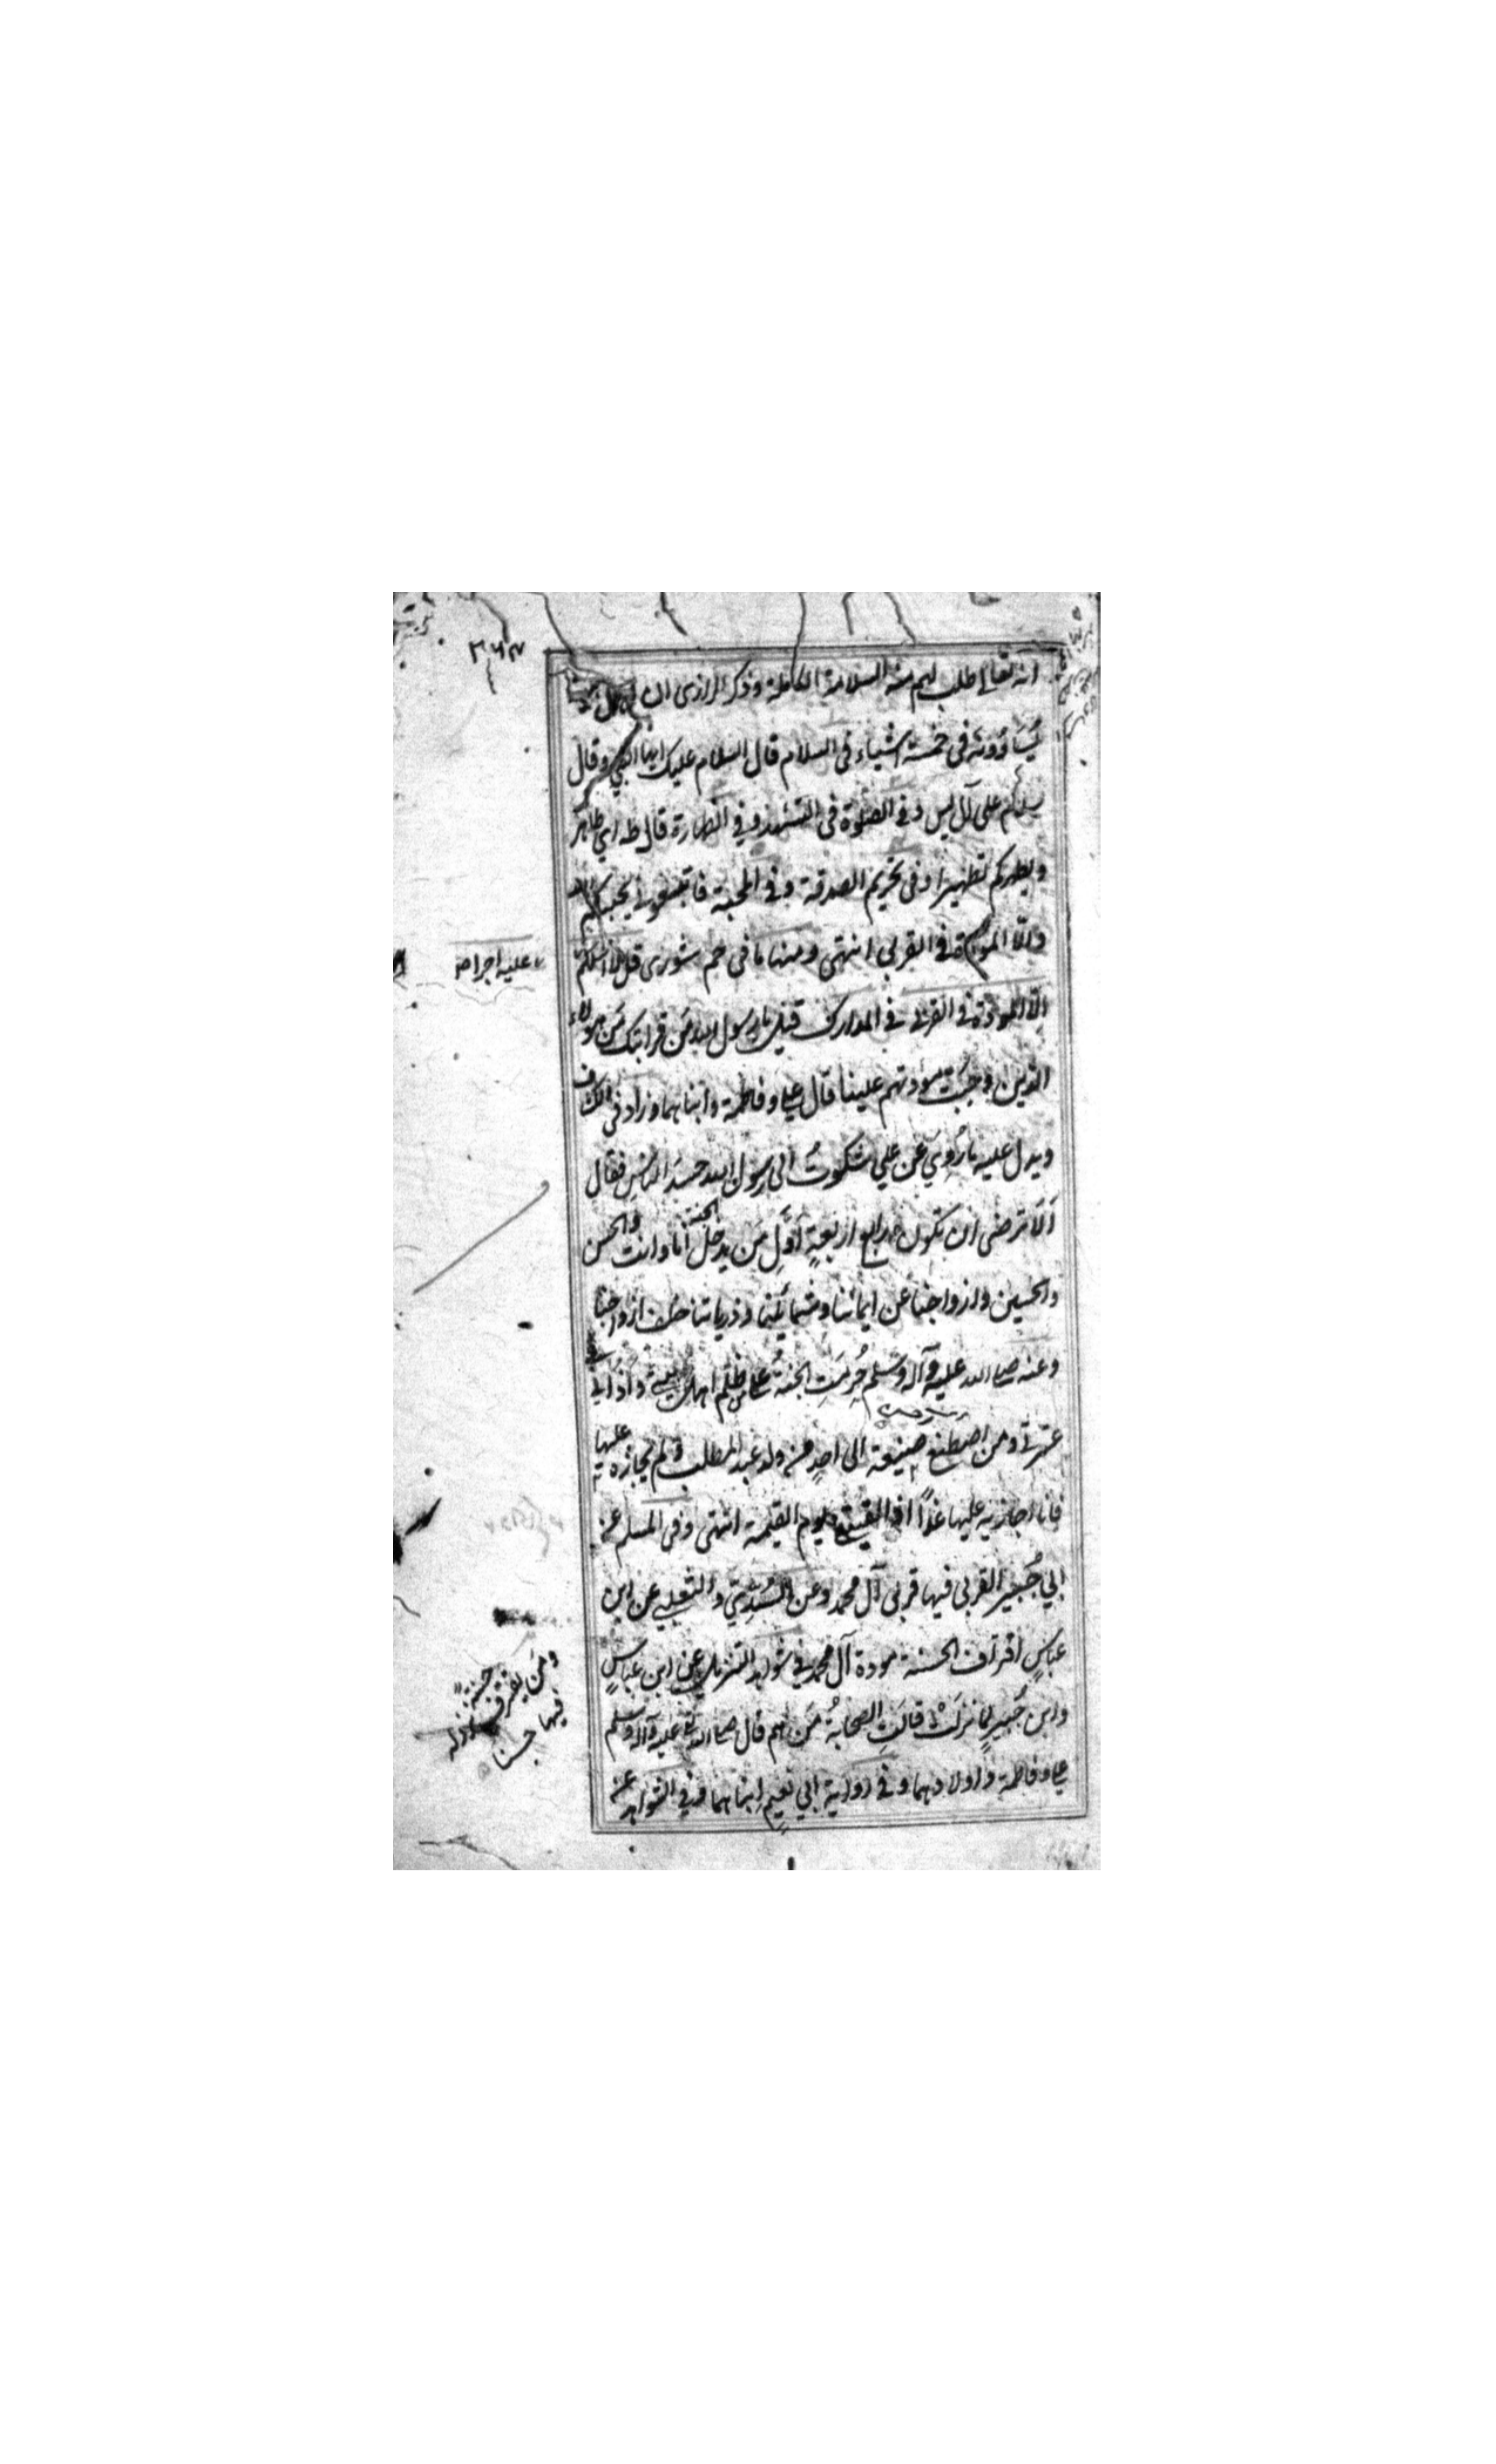 ٣٦٣
انه تعالى طلب لهم منه السلامة الكاملة وذكر الرازى ان اهل بيته
يُسَاوُونَه فى خمسة اشياء فى السلام قال السلام عليك ايها النبي وقال
سلام على آل يس وفى الصلوة فى التشهد وفي الطهارة قال طه اي طاهر
ويطهركم تطهيرا وفى تحريم الصدقة وفى المحبة فاتبعوني يحببكم الله
والّا المودة فى القربى انتهى ومنها ما فى حم شورى قل لا اسئلكم
عليه اجرا صح
الّا المودّة فى القربى فى المدارك قيل يا رسول الله مَن قرابتك مَن هؤلاء
الذين وجبَت مودتهم علينا قال علي وفاطمة وابناهما وزاد فى الكشاف
ويدل عليه ما رُوِيَ عن علي شكوتُ الى رسول الله حسدَ الناسِ فقال
اَلَا ترضى ان تكون رابع اربعةٍ اَوَّلِ مَن يدخل الجنة انا وانت والحسن
والحسين وازواجنا عن ايماننا وشمائلنا وذرياتنا خلف ازواجنا
وعنه صلى الله عليه وآله وسلم حُرِّمَتِ الجنةُ على من ظلم اهلَ بيتي وآذاني في
عترتي ومن اصطنع صنيعة الى احدٍ من ولد عبد المطلب ولم يجازه عليها
فانا اجازيه عليها غدًا اذا لقيني يوم القيمة انتهى وفى المسلم عن
ابي جُبير القربى فيها قربى آل محمد وعن السُّدِّيّ والثعلبي عن ابن
عباسٍ اقتراف الحسنة مودة آل محمد في شواهد التنزيل عن ابن عباسٍ
ومَن يقترف حسنة نزد له
فيها حسنا
وابن جُبيرٍ لما نزلت قالتِ الصحابةُ مَن هم قال صلى الله عليه وآله وسلم
علي وفاطمة واولادهما وفى رواية ابي نعيم ابناهما وفي الشواهد عن